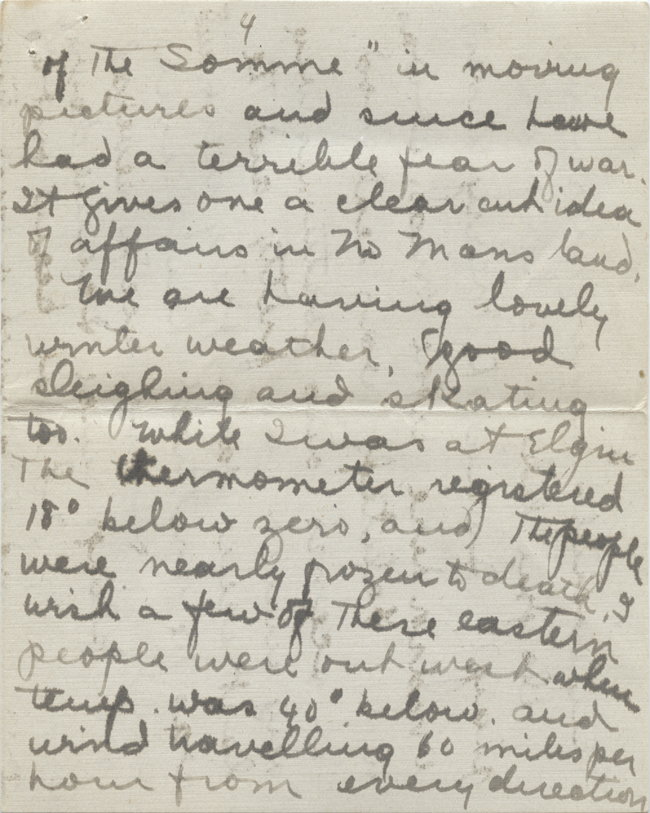 4
of the Somme" in moving
pictures and since have
had a terrible fear of war.
It gives one a clear cut idea
of affairs in No Mans land.
We are having lovely
winter weather, good
sleighing and skating
too. While I was at Elgin
the thermometer registered
18° below zero, and the people
were nearly frozen to death. I
wish a few of these eastern
people were out west when
temp. was 40° below. and
wind travelling 60 miles per
hour from every direction